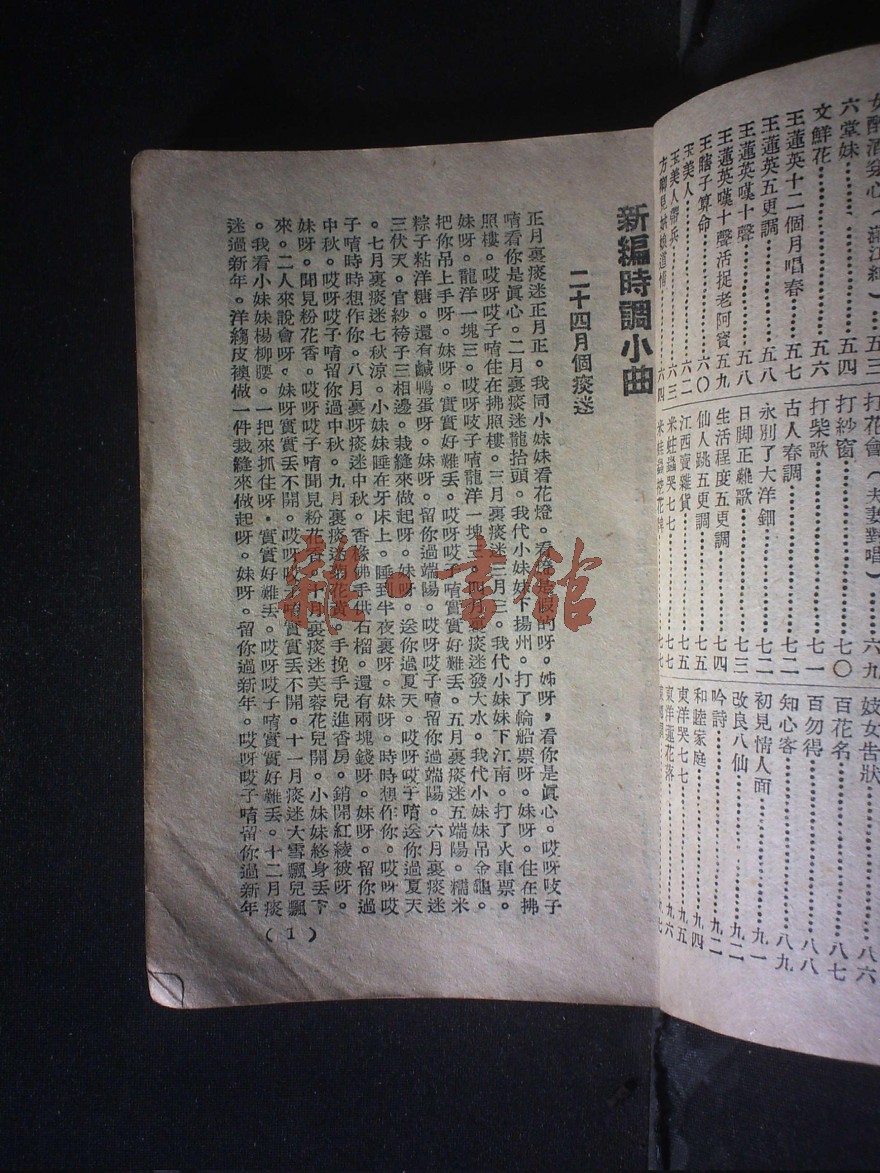 女醉酒
六堂妹……五四
文鮮花……五六
王蓮英十二個月唱春……五七
王蓮英五更調……五八
王蓮英嘆十聲……五八
王蓮英嘆十聲活捉老阿資五九
王瞎子算命……六〇
玉美人……六二
玉美人帶兵……六三
方卿見姑娘道情……六四
打花會（夫妻對唱）……六九
打紗窗……七〇
打柴歌……七一
古人春調……七二
永別了大洋鈿……七二
日脚正難歌……七三
生活程度五更調……七四
仙人跳五更調……七五
江西賣雜貨……七五
米蛀蟲哭七七……七七
妓女告狀……八六
百花名……八七
百勿得……八八
知心客……八九
初見情人面……九一
改良八仙……九二
吟詩……九二
和睦家庭……九四
東洋哭七七……九五
東洋蓮花落……九六
新編時調小曲
二十四月個痰迷
正月裏痰迷正月正。我同小妹妹看花燈。看燈是假的呀。姊呀，看你是眞心。哎呀吱子
唷看你是眞心。二月裏痰迷龍抬頭。我代小妹妹下揚州。打了輪船票呀。妹呀。住在拂
照樓。哎呀哎子唷住在拂照樓。三月裏痰迷三月三。我代小妹妹下江南。打了火車票。
妹呀。龍洋一塊三。哎呀吱子唷龍洋一塊三。四月裏痰迷發大水。我代小妹妹吊金龜。
把你吊上手呀。妹呀。實實好難丢。哎呀哎子唷實實好難丢。五月裏痰迷五端陽。糯米
粽子粘洋糖。還有鹹鴨蛋呀。妹呀。留你過端陽。哎呀哎子唷留你過端陽。六月裏痰迷
三伏天。官紗袴子三相邊。裁縫來做起呀。妹呀。送你過夏天。哎呀哎子唷送你過夏天
。七月裏痰迷七秋涼。小妹妹睡在牙床上。睡到半夜裏呀。妹呀。時時想作你。哎呀哎
子唷時時想作你。八月裏呀痰迷中秋。香櫞佛手供石榴。還有兩塊錢呀。妹呀。留你過
中秋。哎呀哎子唷留你過中秋。九月裏痰迷菊花黃。手挽手兒進香房。銷開紅綾被呀。
妹呀。聞見粉花香。哎呀哎子唷聞見粉花香。十月裏痰迷芙蓉花兒開。小妹妹終身丢下
來。二人來說會呀。妹呀實實丢不開。哎呀哎子唷實實丢不開。十一月痰迷大雪飄兒飄
。我看小妹妹楊柳腰。一把來抓住呀，實實好難丢。哎呀哎子唷實實好難丢。十二月痰
迷過新年。洋縐皮襖做一件裁縫來做起呀。妹呀。留你過新年。哎呀哎子唷留你過新年
（1）
雜·書館